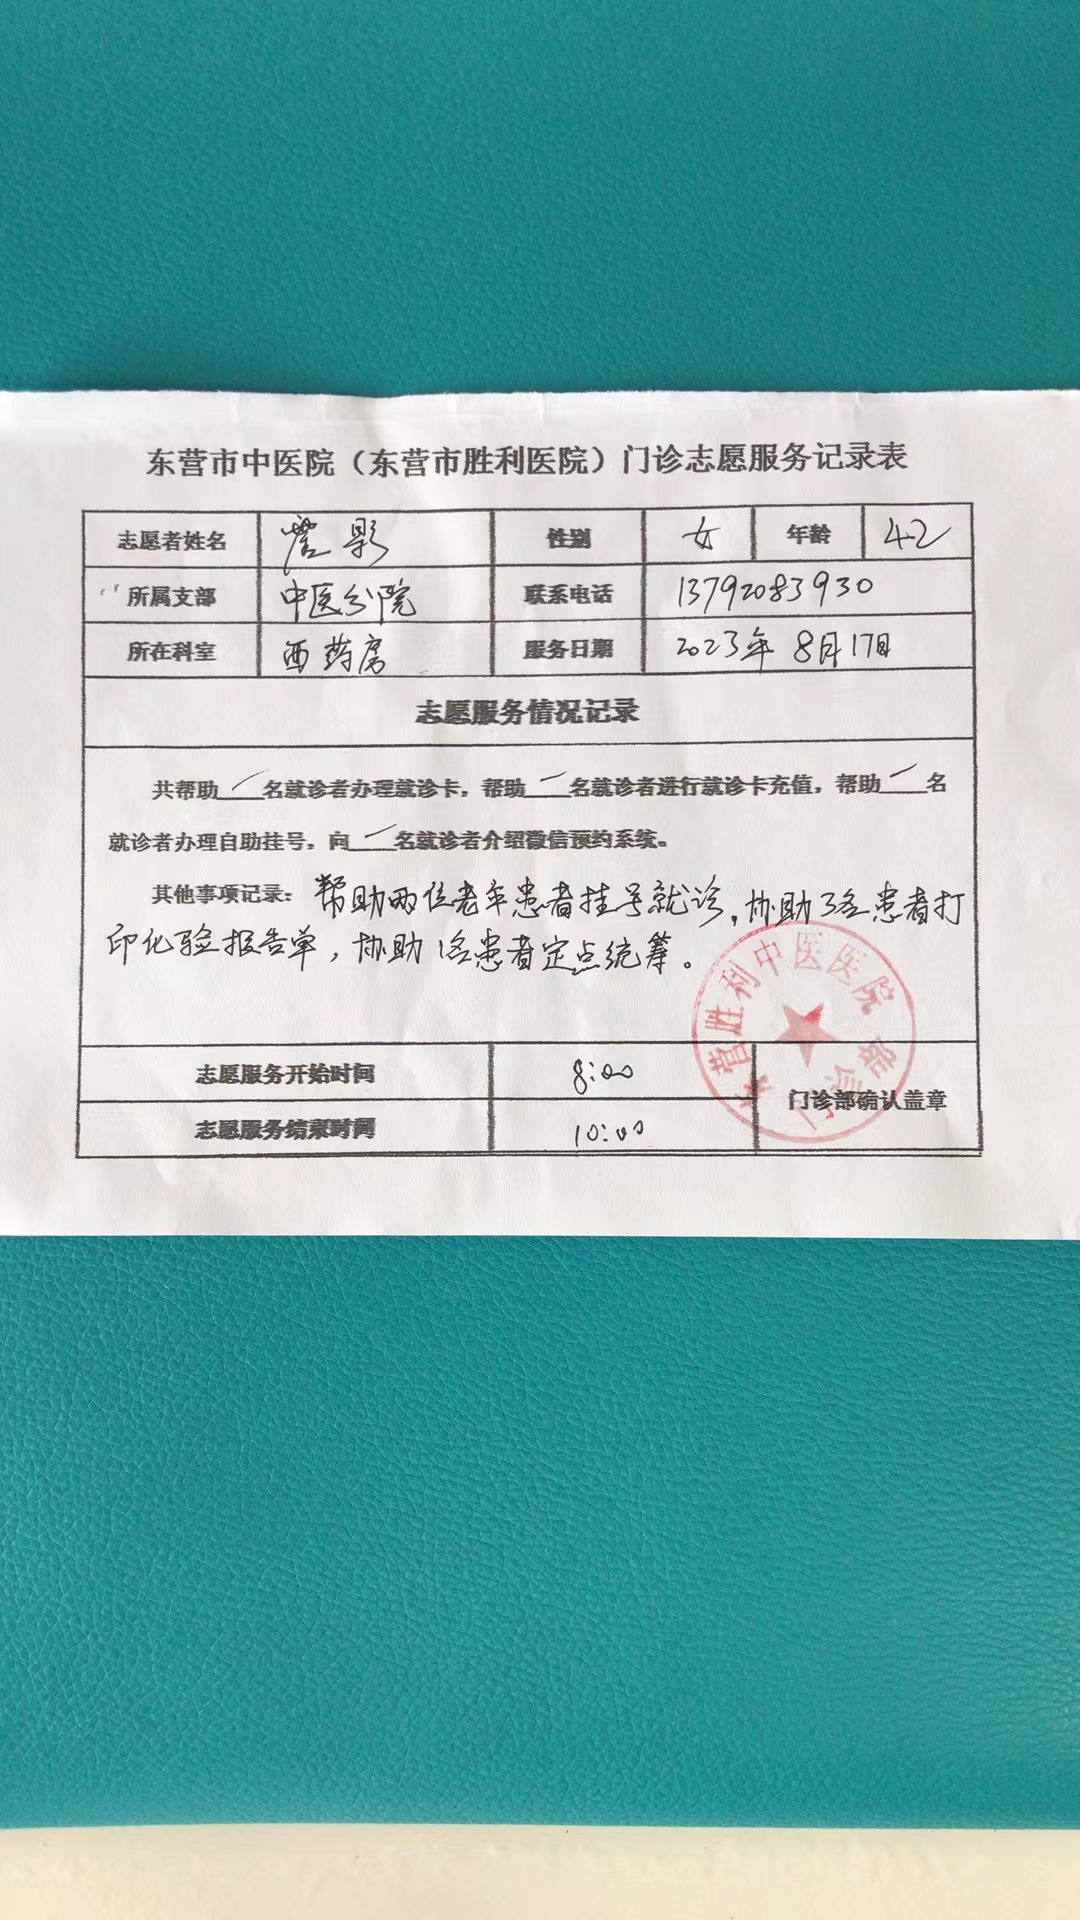 东营市中医院（东营市胜利医院）门诊志愿服务记录表
志愿者姓名 影 性别 女 年龄 42
所属支部 中医分院 联系电话 13792083930
所在科室 西药房 服务日期 2023年8月17日
志愿服务情况记录
共帮助 名就诊者办理就诊卡，帮助 名就诊者进行就诊卡充值，帮助 名
就诊者办理自助挂号，向 名就诊者介绍微信预约系统。
其他事项记录：帮助两位老年患者挂号就诊，协助3名患者打
印化验报告单，协助1名患者定点统筹。
东营胜利中医医院
门诊部
志愿服务开始时间 8:00
门诊部确认盖章
志愿服务结束时间 10:00